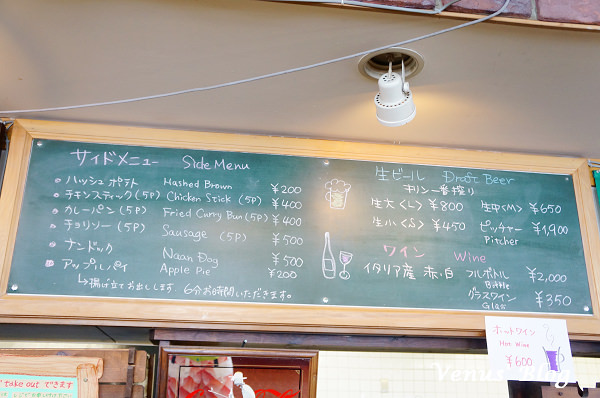 サイドメニュー Side Menu
ハッシュポテト Hashed Brown ¥200
チキンスティック(5P) Chicken Stick (5P) ¥400
カレーパン(5P) Fried Curry Bun (5P) ¥400
チョリソー(5P) Sausage (5P) ¥500
ナンドック Naan Dog ¥500
アップルパイ Apple Pie ¥200
↳揚げ立てお出しします。6分お時間いただきます。
生ビール Draft Beer
キリン一番搾り
生大<L> ¥800 生中<M> ¥650
生小<S> ¥450 ピッチャー ¥1,900
Pitcher
ワイン Wine
イタリア産 赤・白 フルボトル ¥2,000
Bottle
グラスワイン ¥350
Glass
ホットワイン
Hot Wine
¥600
take out できます
Venus Blog